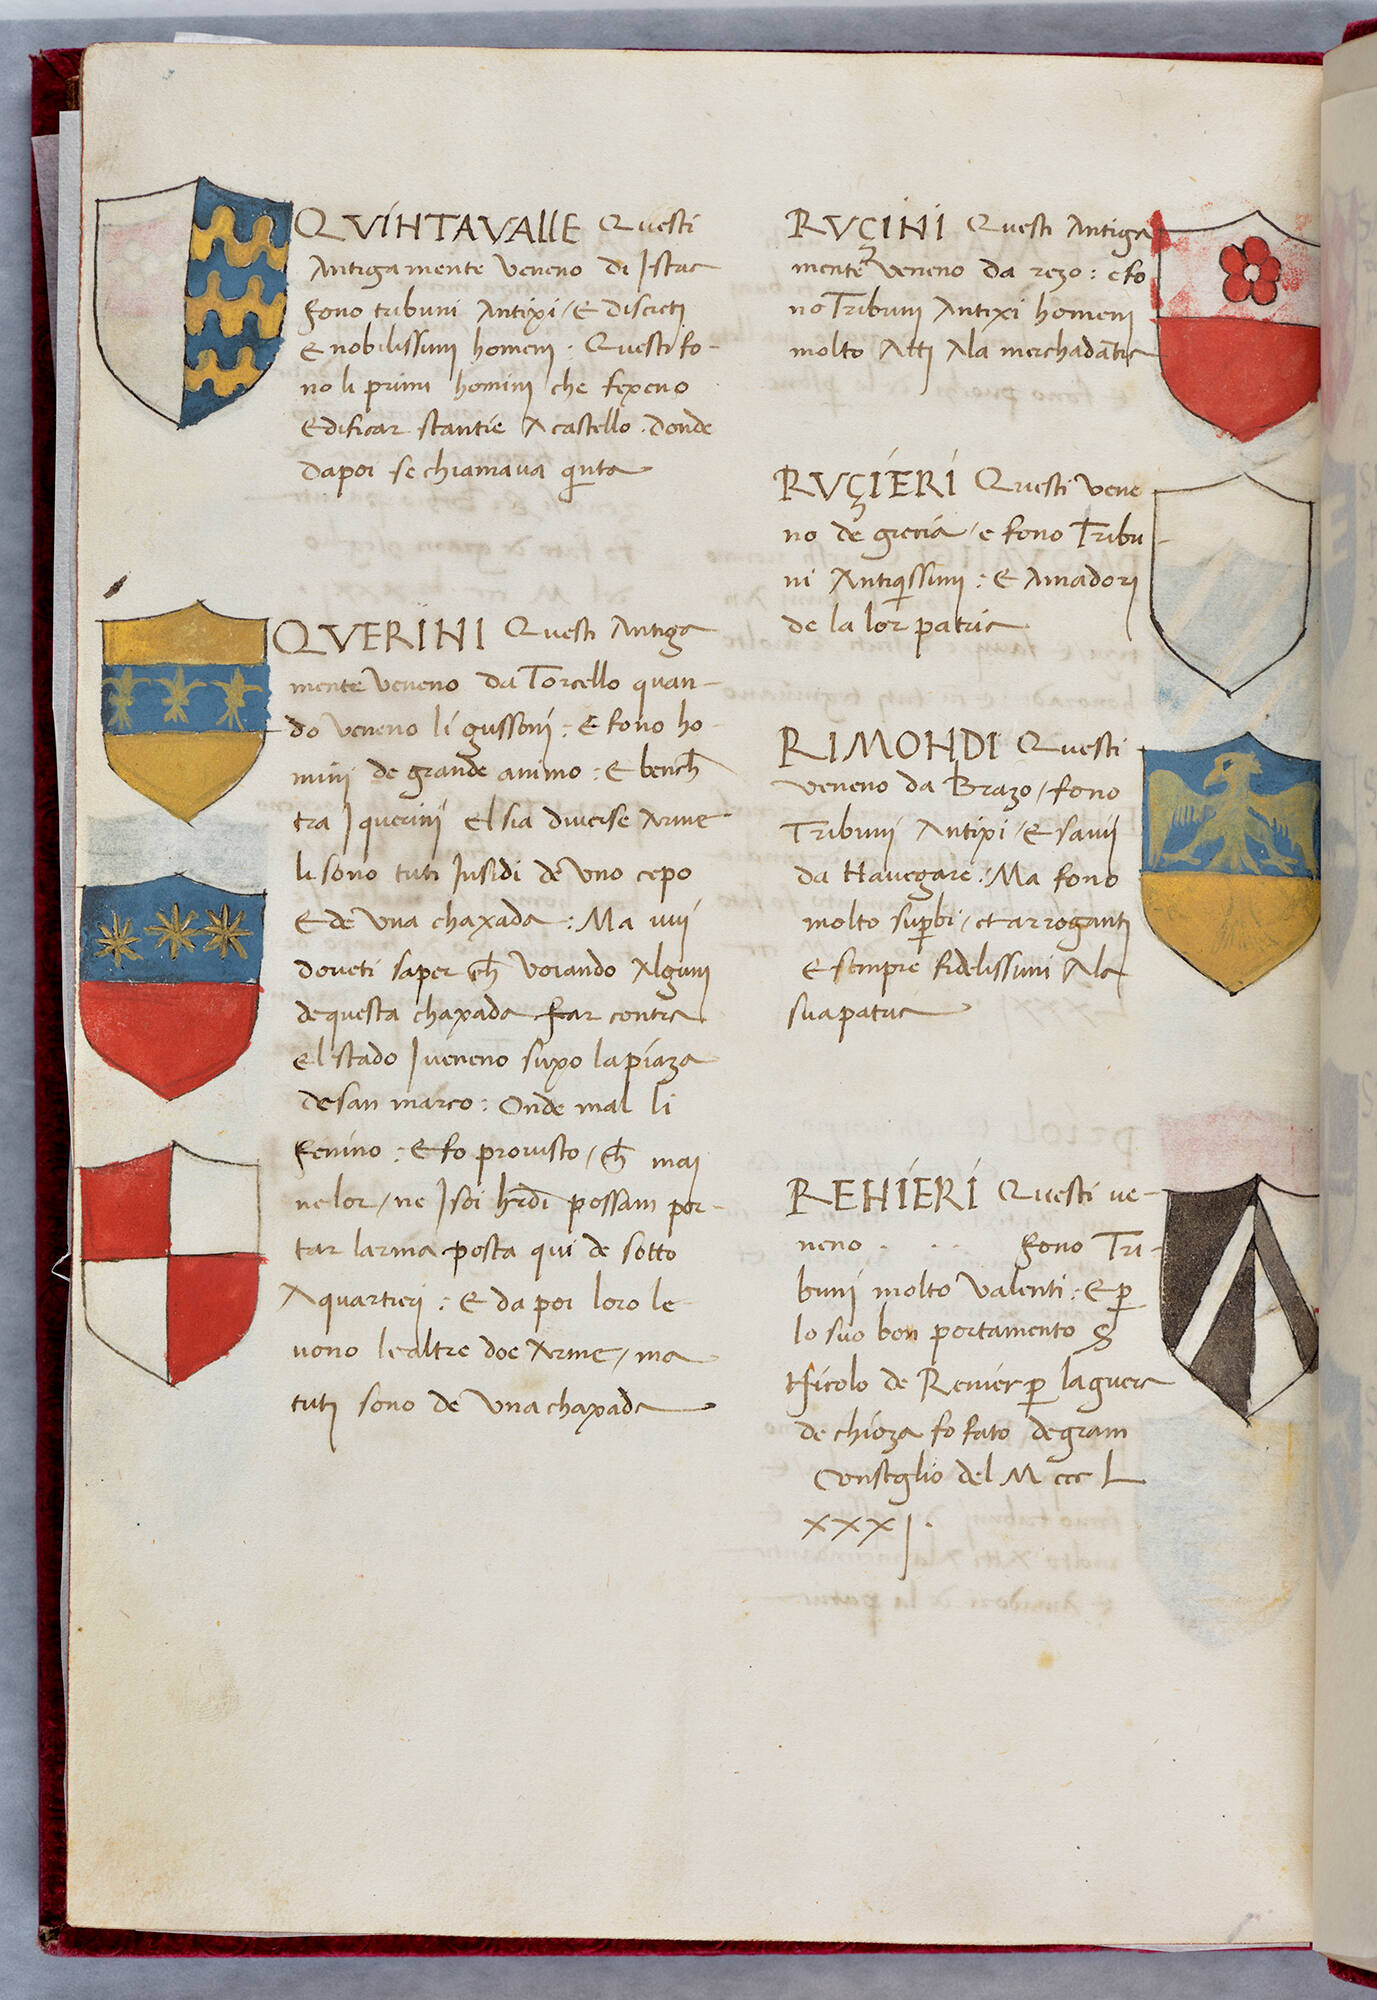 QVINTAVALLE Questi
Antigamente veneno di Istria
fono tribuni Antixi / E discreti
E nobilissimi homeni . Questi fo-
no li primi homini che fexeno
Edificar stantie A castello . donde
dapoi se chiamava quinta
QVERINI Questi Antiga
mente veneno da Torcello quan-
do veneno li gussoni : E fono ho-
mini de grande animo : E bench
tra I querinij el sia diverse Arme
li sono tuti Insidi de uno cepo
E de una chaxada : Ma vuij
doveti saper ch voiando Alguni
de questa chaxada far contra
el stado I veneno suxo la piaza
de san marco : Onde mal li
fenino : E fo provisto / ch mai
ne lor / ne I soi hrdi possam por-
tar larma posta qui de sotto
A quartieri : E da poi loro le-
vono le altre doe Arme / ma
tuti sono de una chaxada
RVÇINI Questi Antiga
mente veneno da rezo : e fo
no Tribuni Antixi homeni
molto Atti Ala merchadantia
RVÇIERI Questi vene
no de grecia / e fono Tribu-
ni Antiquissimi : E Amadori
de la lor patria
RIMONDI Questi
veneno da Brazo / fono
Tribunij Antixi / E savij
da Navegare : Ma fono
molto superbi / et arroganti
E sempre fidelissimi Ala
sua patria
RENIERI Questi ve-
neno . . . . fono Tri-
bunij molto valenti : E per
lo suo bon portamento S
Nicolo de Renier per la guera
de chioza fo fato de gram
Conseglio del M ccc L
XXXI .